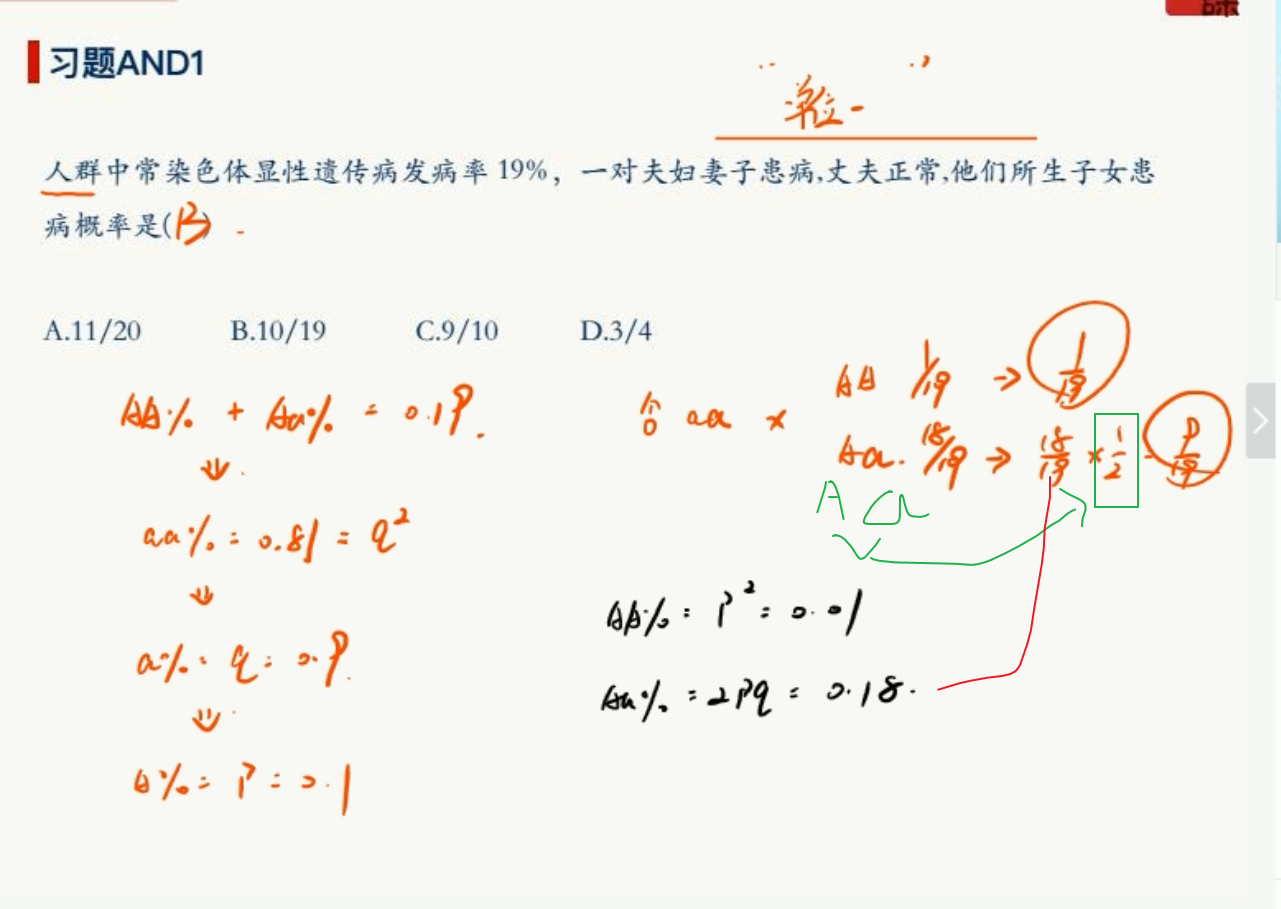 习题AND1
人群中常染色体显性遗传病发病率 19%，一对夫妇妻子患病,丈夫正常,他们所生子女患
病概率是(B)
A.11/20 B.10/19 C.9/10 D.3/4
AA% + Aa% = 0.19.
aa% = 0.81 = q²
a% = q = 0.9.
A% = P = 0.1
♂ aa ×
AA 1/19 → 1/19
Aa. 18/19 → 18/19 × 1/2 = 9/19
A a
AA% = P² = 0.01
Aa% = 2Pq = 0.18.